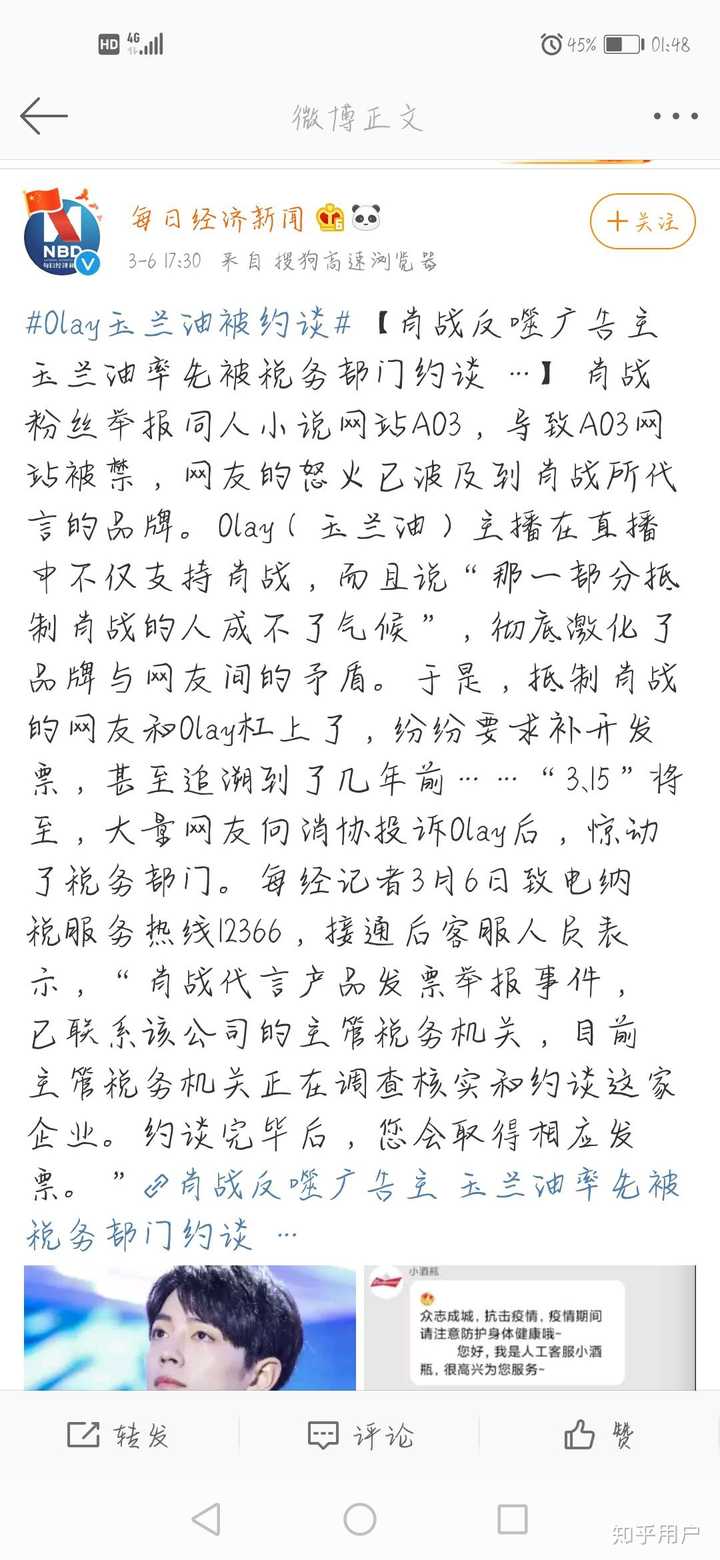 HD 4G 45% 01:48
微博正文
每日经济新闻
+关注
NBD
每日经济新闻
3-6 17:30 来自 搜狗高速浏览器
#Olay玉兰油被约谈#【肖战反噬广告主
玉兰油率先被税务部门约谈 …】 肖战
粉丝举报同人小说网站AO3，导致AO3网
站被禁，网友的怒火已波及到肖战所代
言的品牌。Olay（玉兰油）主播在直播
中不仅支持肖战，而且说“那一部分抵
制肖战的人成不了气候”，彻底激化了
品牌与网友间的矛盾。于是，抵制肖战
的网友和Olay杠上了，纷纷要求补开发
票，甚至追溯到了几年前……“3、15”将
至，大量网友向消协投诉Olay后，惊动
了税务部门。每经记者3月6日致电纳
税服务热线12366，接通后客服人员表
示，“肖战代言产品发票举报事件，
已联系该公司的主管税务机关，目前
主管税务机关正在调查核实和约谈这家
企业。约谈完毕后，您会取得相应发
票。”肖战反噬广告主 玉兰油率先被
税务部门约谈 …
小酒瓶
众志成城，抗击疫情，疫情期间
请注意防护身体健康哦~
您好，我是人工客服小酒
瓶，很高兴为您服务~
转发 评论 赞
知乎用户